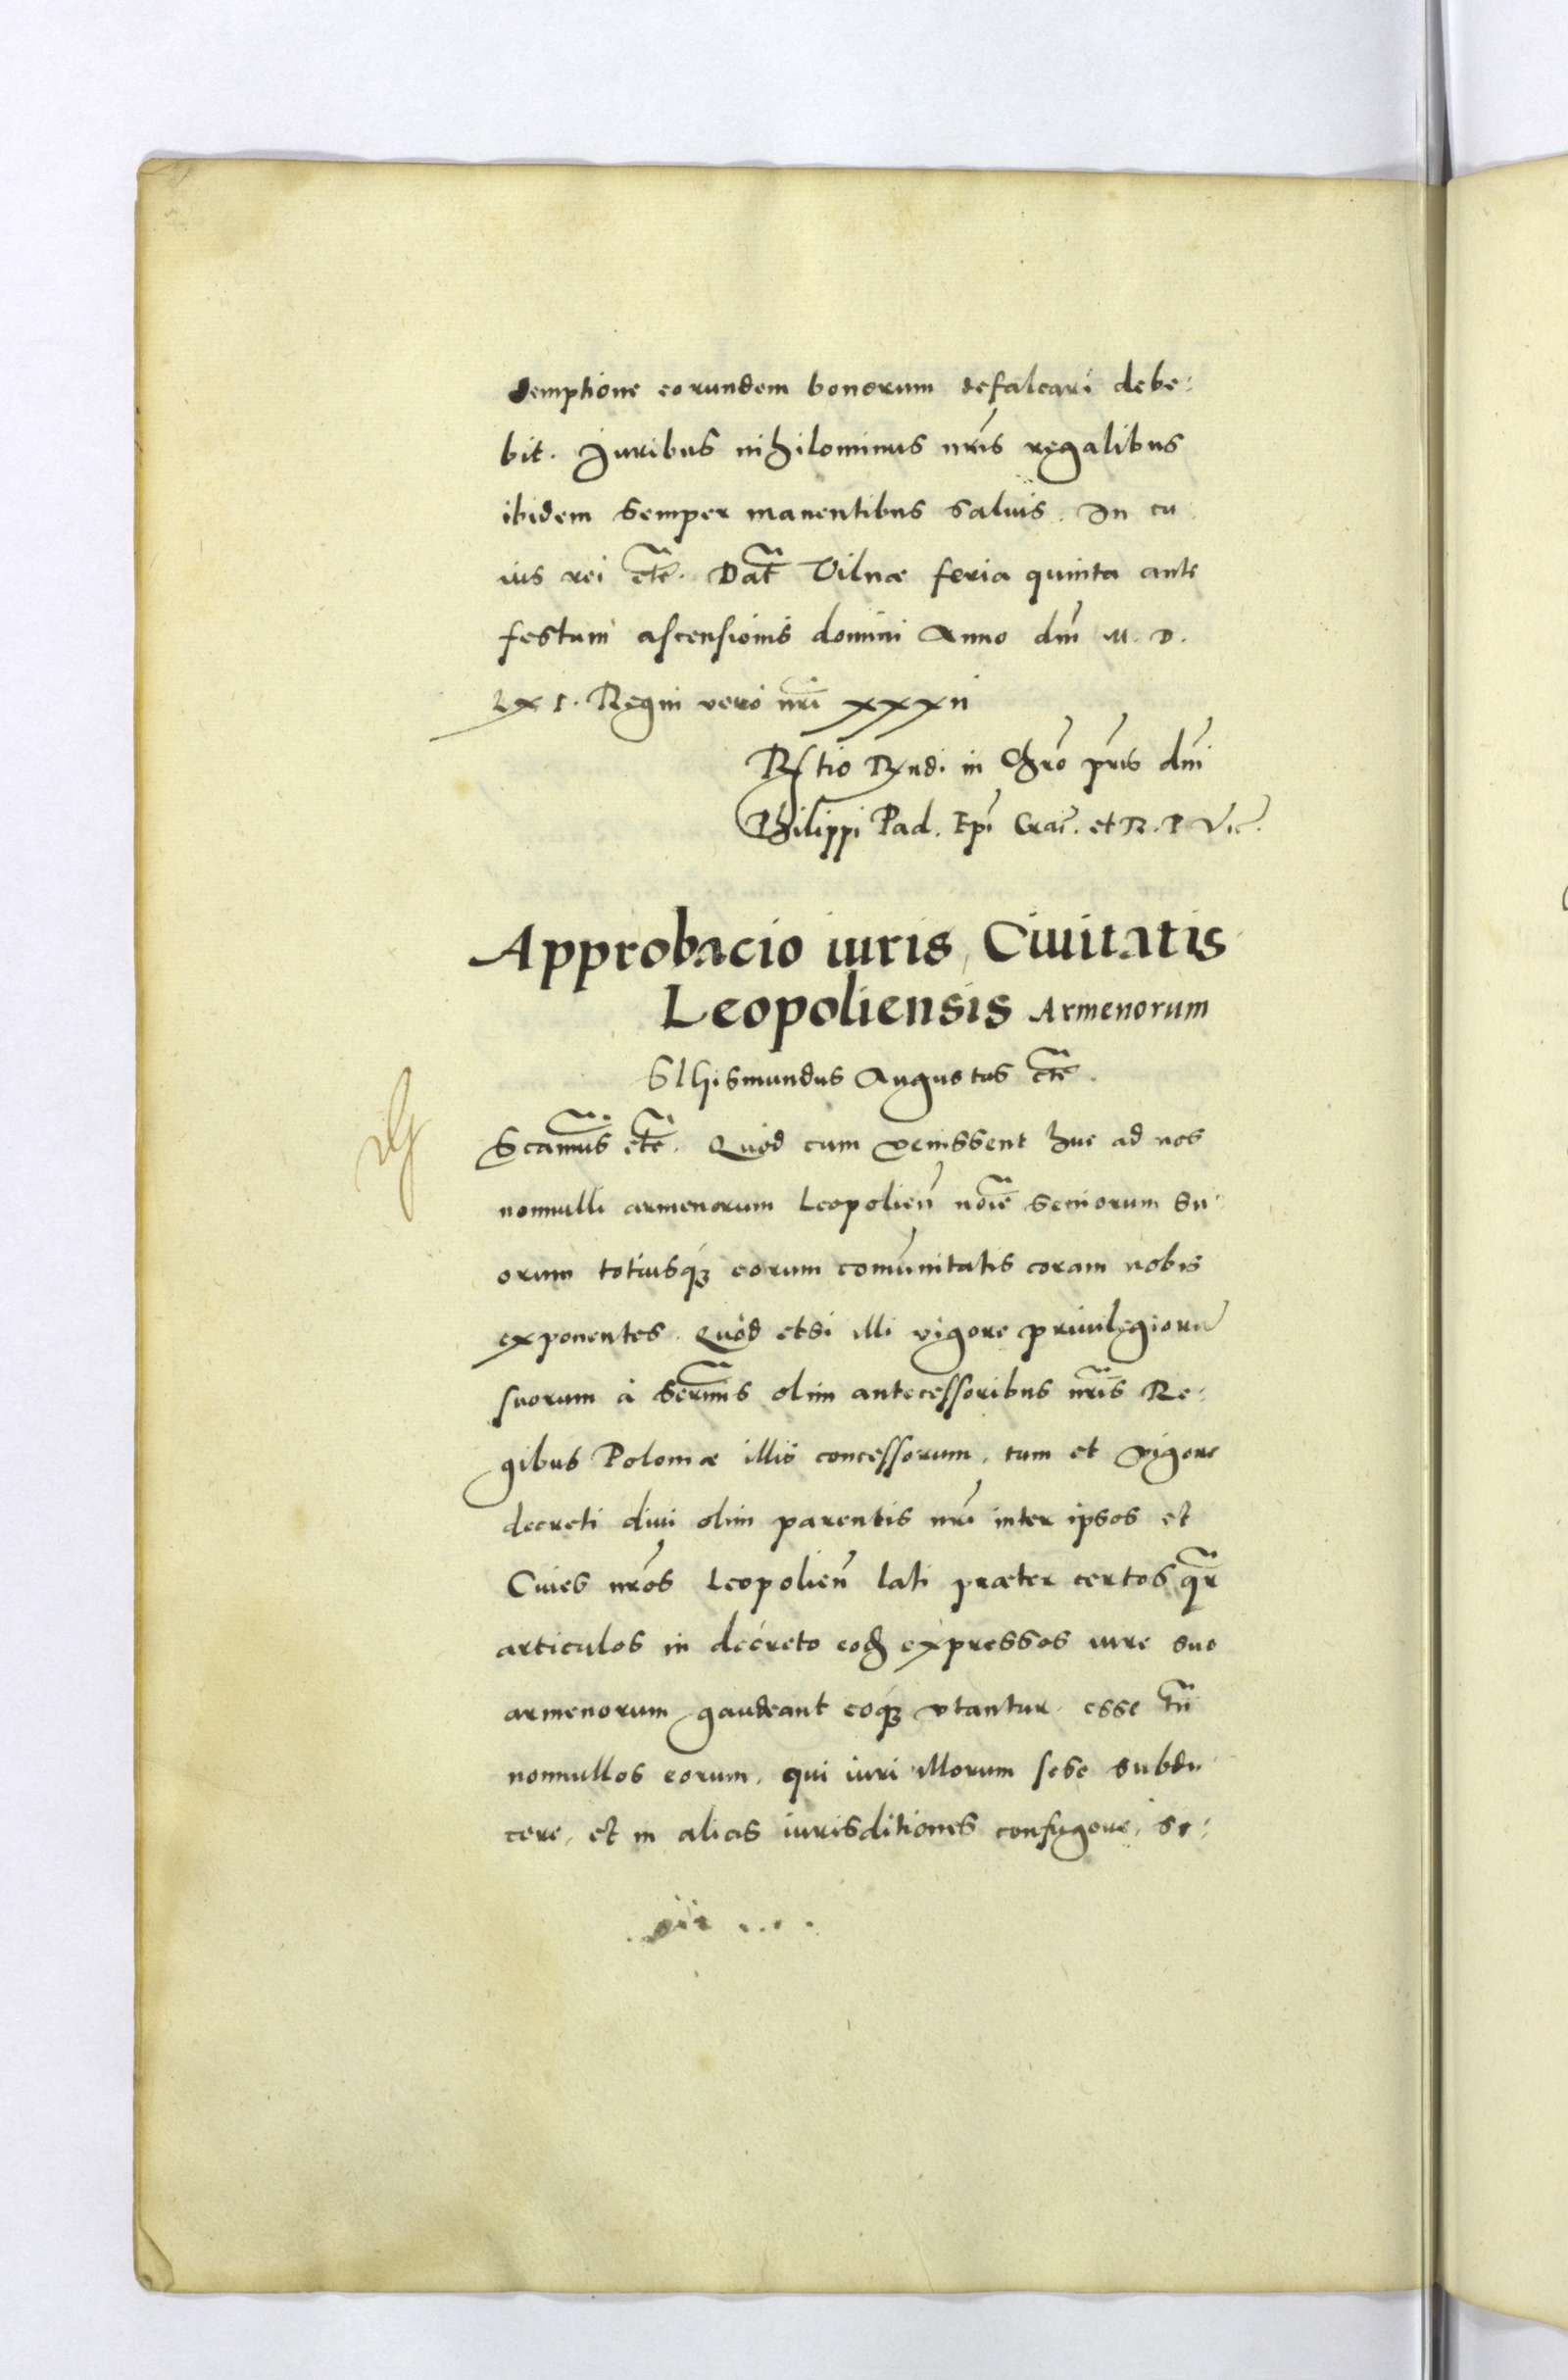 demptione eorundem bonorum defalcari debe:
bit. Juribus nihilominus nris regalibus
ibidem semper manentibus saluis. In cu
ius rei etc. Dat Vilnæ feria quinta ante
festum ascensionis domini Anno dni M. D.
LXI. Regni vero nri xxxii
Rtio Rndi in Chro pris dni
Philippi Pad. Epi Crac. et R. P. Vic.
Approbacio iuris Ciuitatis
Leopoliensis Armenorum
Sigismundus Augustus etc.
Scamus etc. Quod cum venissent huc ad nos
nonnulli armenorum Leopolien noie seniorum su:
orum totiusq3 eorum comunitatis coram nobis
exponentes. Quod etsi illi vigore priuilegioru
suorum à Sermis olim antecessoribus nris Re:
gibus Poloniæ illis concessorum, tum et vigore
decreti diui olim parentis nri inter ipsos et
Ciues nros Leopolien lati præter certos qr
articulos in decreto eod expressos iure suo
armenorum gaudeant eoq3 vtantur. esse tn
nonnullos eorum, qui iuri illorum sese subdu
cere, et in alias iurisditiones confugere, se: